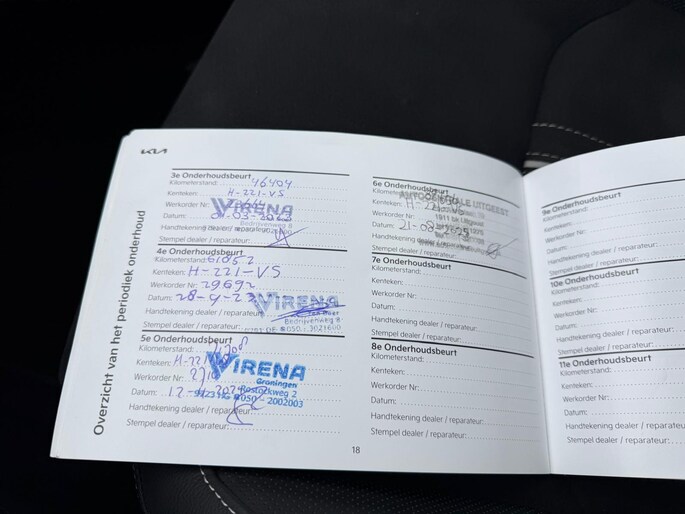 KIA
Overzicht van het periodiek onderhoud
3e Onderhoudsbeurt
Kilometerstand: 46404
Kenteken: H-221-VS
Werkorder Nr:
VIRENA
Datum: -03-2023
Bedrijvenweg 8
Handtekening dealer / reparateur:
Stempel dealer / reparateur:
4e Onderhoudsbeurt
Kilometerstand: 61052
Kenteken: H-221-VS
Werkorder Nr: 29692
Datum: 28-4-23
VIRENA
Bedrijvenweg 8
Handtekening dealer / reparateur:
050 - 3021600
Stempel dealer / reparateur:
5e Onderhoudsbeurt
Kilometerstand:
Kenteken: H-221
VIRENA
Werkorder Nr:
Groningen
Datum: 12-
Rostockweg 2
050 - 2002003
Handtekening dealer / reparateur:
Stempel dealer / reparateur:
6e Onderhoudsbeurt
Kilometerstand:
UITGEEST
Kenteken: H-221-VS
Werkorder Nr:
1911
Uitgeest
Datum: 21-08-2025
Handtekening dealer / reparateur:
Stempel dealer / reparateur:
7e Onderhoudsbeurt
Kilometerstand:
Kenteken:
Werkorder Nr:
Datum:
Handtekening dealer / reparateur:
Stempel dealer / reparateur:
8e Onderhoudsbeurt
Kilometerstand:
Kenteken:
Werkorder Nr:
Datum:
Handtekening dealer / reparateur:
Stempel dealer / reparateur:
18
9e Onderhoudsbeurt
Kilometerstand:
Kenteken:
Werkorder Nr:
Datum:
Handtekening dealer / reparateur:
Stempel dealer / reparateur:
10e Onderhoudsbeurt
Kilometerstand:
Kenteken:
Werkorder Nr:
Datum:
Handtekening dealer / reparateur:
Stempel dealer / reparateur:
11e Onderhoudsbeurt
Kilometerstand:
Kenteken:
Werkorder Nr:
Datum:
Handtekening dealer / reparateur:
Stempel dealer / reparateur: